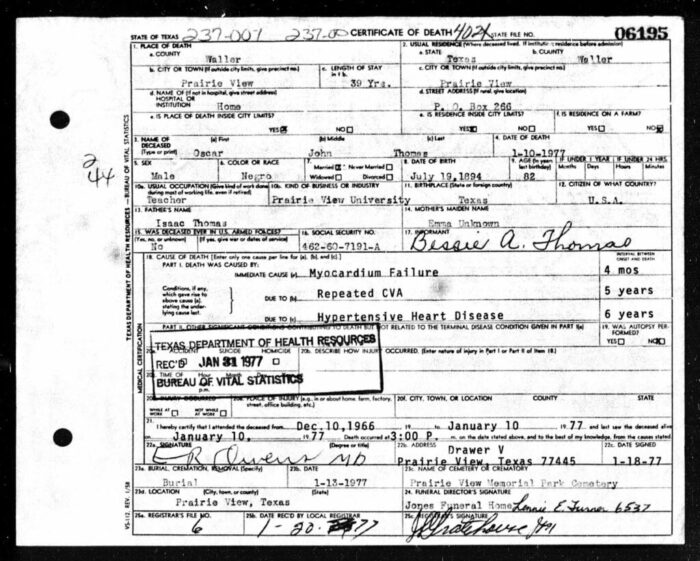 STATE OF TEXAS 237-001 237-00 CERTIFICATE OF DEATH 402 STATE FILE NO. 06195
1. PLACE OF DEATH 2. USUAL RESIDENCE (Where deceased lived. If institution: residence before admission)
a. COUNTY a. STATE b. COUNTY
Waller Texas Waller
b. CITY OR TOWN (If outside city limits, give precinct no.) c. LENGTH OF STAY in 1 b. c. CITY OR TOWN (If outside city limits, give precinct no.)
Prairie View 39 Yrs. Prairie View
d. NAME OF (If not in hospital, give street address) HOSPITAL OR INSTITUTION d. STREET ADDRESS (If rural, give location)
Home P. O. Box 266
e. IS PLACE OF DEATH INSIDE CITY LIMITS? e. IS RESIDENCE INSIDE CITY LIMITS? f. IS RESIDENCE ON A FARM?
YES NO YES NO YES NO
3. NAME OF DECEASED (Type or print) (a) First (b) Middle (c) Last 4. DATE OF DEATH
Oscar John Thomas 1-10-1977
5. SEX 6. COLOR OR RACE 7. Married Never Married Widowed Divorced 8. DATE OF BIRTH 9. AGE (In years last birthday) IF UNDER 1 YEAR IF UNDER 24 HRS
Months Days Hours Minutes
Male Negro July 19, 1894 82
10a. USUAL OCCUPATION (Give kind of work done during most of working life, even if retired) 10b. KIND OF BUSINESS OR INDUSTRY 11. BIRTHPLACE (State or foreign country) 12. CITIZEN OF WHAT COUNTRY?
Teacher Prairie View University Texas U.S.A.
13. FATHER'S NAME 14. MOTHER'S MAIDEN NAME
Isaac Thomas Emma Unknown
15. WAS DECEASED EVER IN U.S. ARMED FORCES? 16. SOCIAL SECURITY NO. 17. INFORMANT
(Yes, no, or unknown) (If yes, give war or dates of service)
No 462-60-7191-A Bessie A. Thomas
18. CAUSE OF DEATH [Enter only one cause per line for (a), (b), and (c).] INTERVAL BETWEEN ONSET AND DEATH
PART I. DEATH WAS CAUSED BY:
IMMEDIATE CAUSE (a) Myocardium Failure 4 mos
Conditions, if any, which gave rise to above cause (a), stating the underlying cause last.
DUE TO (b) Repeated CVA 5 years
DUE TO (c) Hypertensive Heart Disease 6 years
PART II. OTHER SIGNIFICANT CONDITIONS CONTRIBUTING TO DEATH BUT NOT RELATED TO THE TERMINAL DISEASE CONDITION GIVEN IN PART I(a) 19. WAS AUTOPSY PERFORMED?
YES NO
TEXAS DEPARTMENT OF HEALTH RESOURCES
ACCIDENT SUICIDE HOMICIDE 20b. DESCRIBE HOW INJURY OCCURRED. (Enter nature of injury in Part I or Part II of item 18.)
REC'D JAN 31 1977
TIME OF
BUREAU OF VITAL STATISTICS
INJURY OCCURRED PLACE OF INJURY (e.g., in or about home, farm, factory, street, office building, etc.) 20f. CITY, TOWN, OR LOCATION COUNTY STATE
WHILE AT WORK NOT WHILE AT WORK
21. I hereby certify that I attended the deceased from Dec. 10, 1966 to January 10 1977 and last saw the deceased alive
on January 10, 1977 Death occurred at 3:00 P. m. on the date stated above, and to the best of my knowledge, from the causes stated
22a. SIGNATURE (Degree or title) 22b. ADDRESS 22c. DATE SIGNED
E R Owens MD Drawer V
Prairie View, Texas 77445 1-18-77
23a. BURIAL, CREMATION, REMOVAL (Specify) 23b. DATE 23c. NAME OF CEMETERY OR CREMATORY
Burial 1-13-1977 Prairie View Memorial Park Cemetery
23d. LOCATION (City, town, or county) (State) 24. FUNERAL DIRECTOR'S SIGNATURE
Prairie View, Texas Jones Funeral Home Lonnie E. Turner 6537
25a. REGISTRAR'S FILE NO. 25b. DATE REC'D BY LOCAL REGISTRAR 25c. REGISTRAR'S SIGNATURE
6 1-20-77
2
44
TEXAS DEPARTMENT OF HEALTH RESOURCES - BUREAU OF VITAL STATISTICS
MEDICAL CERTIFICATION
VS-112, REV. 1/58